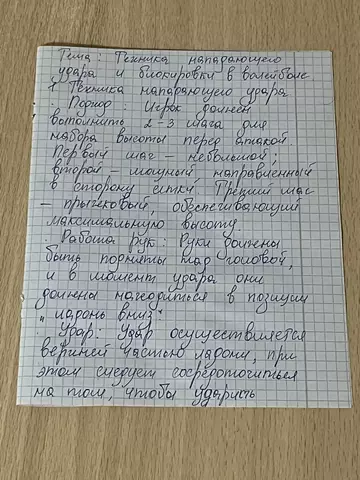 Тема: Техника нападающего
удара и блокировки в волейболе.
1. Техника нападающего удара
· Подход: Игрок должен
выполнить 2-3 шага для
набора высоты перед атакой.
Первый шаг - небольшой;
второй - мощный направленный
в сторону сетки. Третий шаг
- прыжковый, обеспечивающий
максимальную высоту.
· Работа рук: Руки должны
быть подняты над головой,
и в момент удара они
должны находиться в позиции
"ладонь вниз".
· Удар: Удар осуществляется
верхней частью ладони, при
этом следует сосредоточиться
на том, чтобы ударить